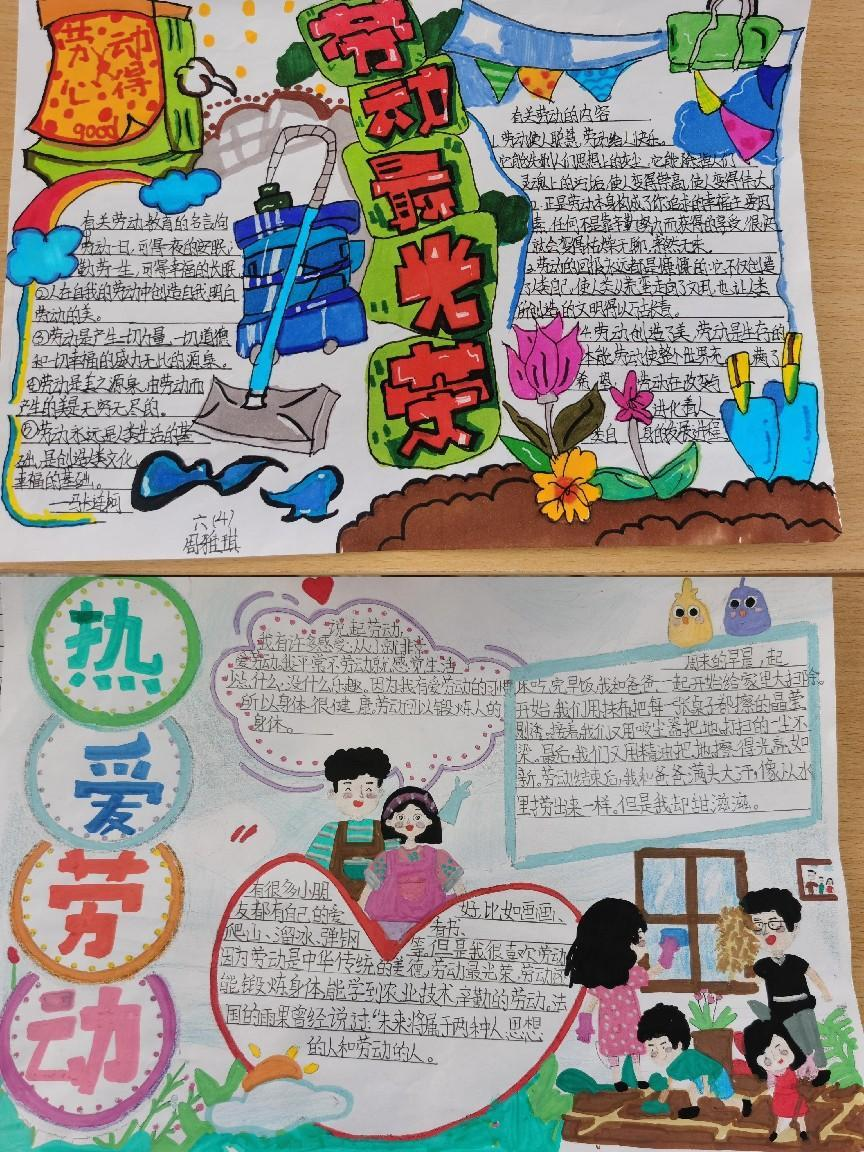 劳动
心得
good
劳
动
最
光
荣
有关劳动教育的名言句
劳动一日,可得一夜的安眠;
勤劳一生,可得幸福的长眠
②人在自我的劳动中创造自我,明白
劳动的美。
③劳动是产生一切力量、一切道德
和一切幸福的威力无比的源泉。
④劳动是美之源泉,由劳动而
产生的美是无穷无尽的。
⑤劳动永远是人类生活的基
础,是创造人类文化
幸福的基础。
六(4)
周雅琪
有关劳动的内容
1.劳动使人聪慧,劳动给人快乐。
正是劳动本身构成了你追求的幸福的主要因
素,任何不是靠辛勤努力而获得的享受,很快
就会变得枯燥无聊,索然无味。
3.劳动的回报永远都是慷慨的:它不仅创造
了人类自己,使人类从蛮荒走向了文明,也让人类
所创造的文明得以万古长青。
4.劳动创造了美,劳动是生存的
本能,劳动使整个世界充满了
劳动在改变
进化着人
热
爱
劳
动
说起劳动,
我有许多感受:从小就非常
爱劳动,我平常不劳动就感觉生活
没什么乐趣。因为我有爱劳动的习惯
所以身体很健康,劳动可以锻炼人的
身体。
周末的早晨,起
床吃完早饭,我和爸爸一起开始给家里大扫除。
开始,我们用抹布把每一张桌子都擦的晶莹
剔透。接着我们又用吸尘器把地板扫的一尘不
染。最后,我们又用精油把地擦得光亮如
新。劳动结束后,我和爸爸满头大汗,像从水
里捞出来一样。但是我却甜滋滋。
有很多小朋
友都有自己的爱好,比如画画、
爬山、溜冰、弹钢 看书、
等,但是我很喜欢劳动
因为劳动是中华传统的美德,劳动最光荣,劳动还
能锻炼身体,能学到农业技术,辛勤的劳动。法
国的雨果曾经说过:“未来将属于两种人:思想
的人和劳动的人。